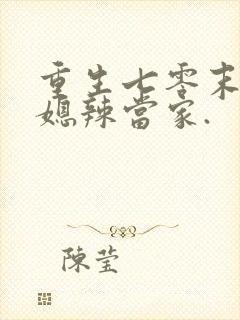 重生七零末
媳辣當家.
陳瑩